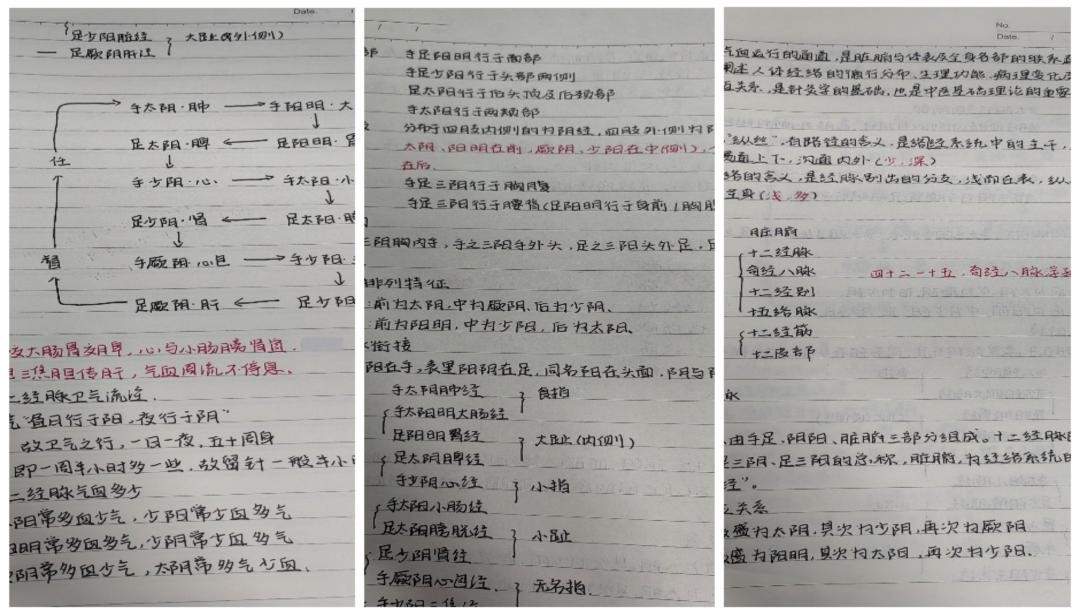 Date.
足少阳胆经
大趾(内外侧)
足厥阴肝经
手太阴·肺 → 手阳明·大
足太阴·脾 ← 足阳明·胃
任
手少阴·心 → 手太阳·小
足少阴·肾 ← 足太阳·膀
督
手厥阴·心包 → 手少阳·三
足厥阴·肝 ← 足少阳
交大肠胃交脾,心与小肠膀胱肾宜.
三焦胆传肝,气血周流不停息.
二经脉卫气流注.
气"昼日行于阳,夜行于阴"
故卫气之行,一日一夜,五十周身
即一周半小时多一些,故留针一般半小
二经脉气血多少
阳常多血少气,少阳常少血多气
阳明常多血多气,少阴常少血多气
厥阴常多血少气,太阴常多气少血.
部
手足阳明行于面部
手足少阳行于头部两侧
足太阳行于后头顶及后颈部
手太阳行于两颊部
分布于四肢内侧的为阴经,四肢外侧为阳
太阴、阳明在前,厥阴、少阳在中(侧),
在后.
手足三阴行于胸腹
手足三阳行于腰背(足阳明行于身前(胸腹
三阴胸内手,手之三阳手外头,足之三阳头外足,足
排列特征
:前为太阴,中为厥阴,后为少阴、
:前为阳明,中为少阳,后为太阳、
衔接
阳在手,表里阴阳在足,同名手阳在头面,阴与阴
手太阴肺经
食指
手太阳明大肠经
足阳明胃经
大趾(内侧)
足太阴脾经
手少阴心经
小指
手太阳小肠经
足太阳膀胱经
小趾
足少阴肾经
手厥阴心包经
无名指.
手少阳三焦经
No.
Date.
气血运行的通道,是脏腑与体表及全身各部的联系
阐述人体经络的循行分布、生理功能、病理变化及
互关系,是针灸学的基础,也是中医基础理论的重要
"纵丝",有路径的含义,是经络系统中的主干,
贯通上下,沟通内外(少,深)
络的含义,是经脉别出的分支,浅而在表,纵
全身(浅,多)
脏腑
十二经脉
奇经八脉
四十二一十五,奇经八脉
十二经别
十五络脉
十二经筋
十二皮部
脉
由手足、阴阳、脏腑三部分组成。十二经脉
三阴、足三阳的总称,脏腑,为经络系统的
经"。
关系
盛为太阴,其次为少阴,再次为厥阴
盛为阳明,其次为太阳,再次为少阳.